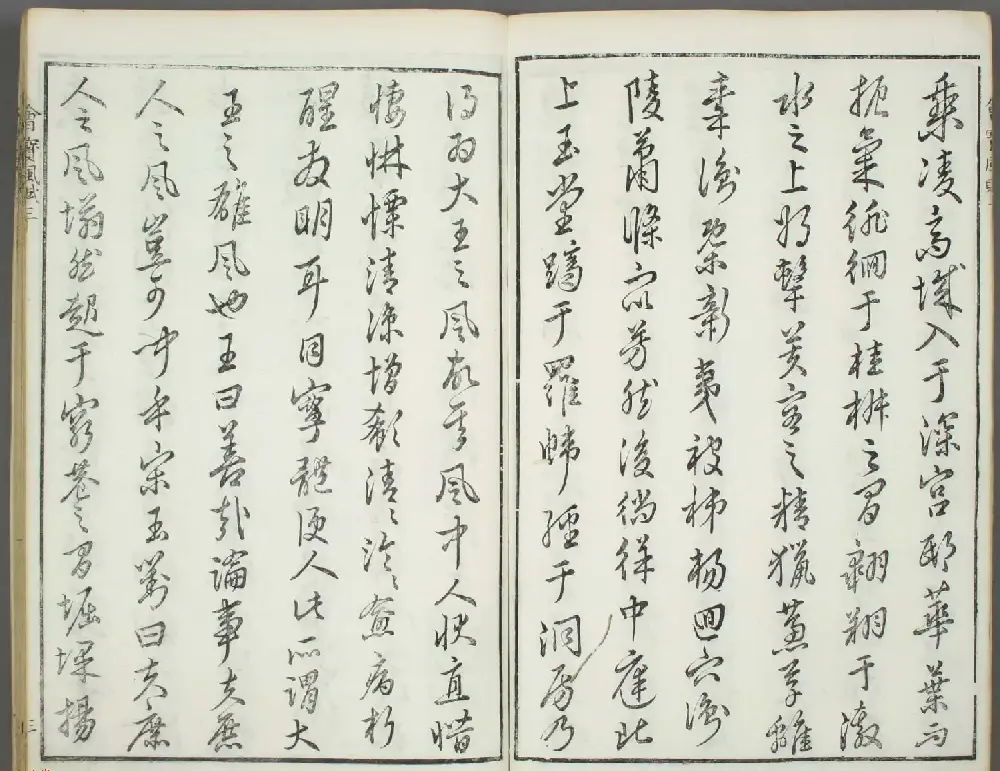 乘凌高城入于深宮邸華葉而
振氣徘徊于桂椒之間翱翔于激
水之上將擊芙蓉之精獵蕙草離
秦衡槩新夷被梯楊迴穴衝
陵蕭條衆芳然後徜徉中庭北
上玉堂躋于羅帷經于洞房乃
得爲大王之風故其風中人狀直憯
悽惏慄清涼增欷清〻泠〻愈病析
酲發明耳目寧體便人此所謂大
王之雄風也王曰善哉論事夫庶
人之風豈可聞乎宋玉對曰夫庶
人之風塕然起于窮巷之間堀堁揚
三